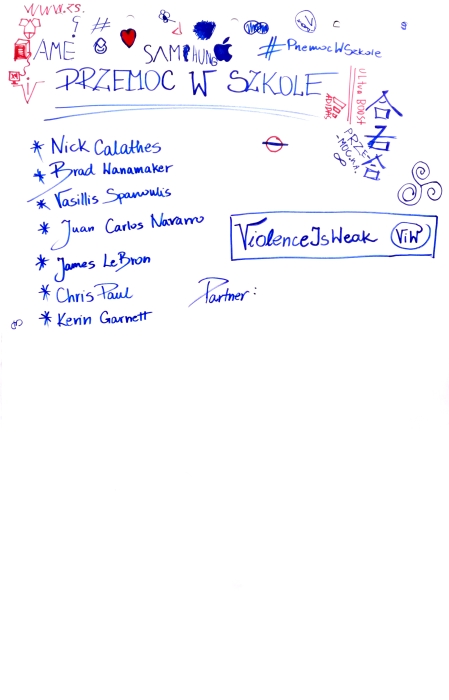 www.zs.
#
AME
SAMPHUNG
#PrzemocWSzkole
PRZEMOC W SZKOLE
Ultra BOOST
ADIDAS
PRZE
-MOC.W.
* Nick Calathes
* Brad Wanamaker
* Vasillis Spanoulis
* Juan Carlos Navarro
* James LeBron
* Chris Paul
* Kevin Garnett
ViolenceIsWeak ViW
Partner: